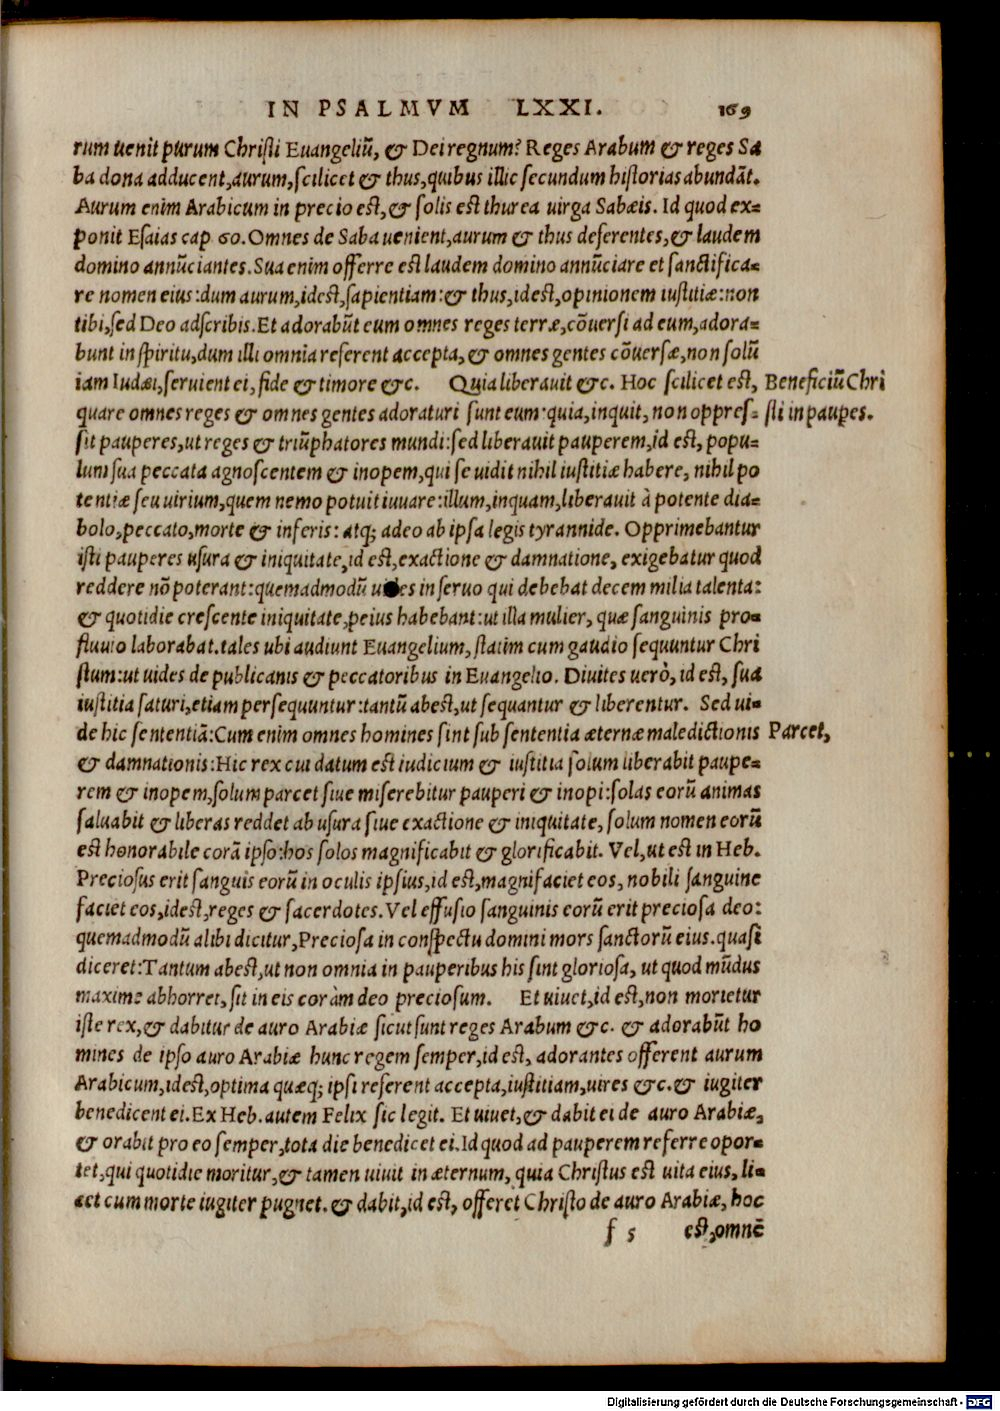 IN PSALMVM LXXI. 169
rum uenit purum Christi Euangeliũ, & Dei regnum? Reges Arabum & reges Sa
ba dona adducent, aurum, scilicet & thus, quibus illic secundum historias abundãt.
Aurum enim Arabicum in precio est, & solis est thurea uirga Sabæis. Id quod ex=
ponit Esaias cap 60. Omnes de Saba uenient, aurum & thus deferentes, & laudem
domino annũciantes. Sua enim offerre est laudem domino annũciare et sanctifica=
re nomen eius: dum aurum, idest, sapientiam: & thus, idest, opinionem iustitiæ: non
tibi, sed Deo adscribis. Et adorabũt eum omnes reges terræ, cõuersi ad eum, adora=
bunt in spiritu, dum illi omnia referent accepta, & omnes gentes cõuersæ, non solũ
iam Iudæi, seruient ei, fide & timore &c. Quia liberauit &c. Hoc scilicet est, Beneficiũ Chri
quare omnes reges & omnes gentes adoraturi sunt eum: quia, inquit, non oppres= sti in paupes.
sit pauperes, ut reges & triũphatores mundi: sed liberauit pauperem, id est, popu=
lum sua peccata agnoscentem & inopem, qui se uidit nihil iustitiæ habere, nihil po
tentiæ seu uirium, quem nemo potuit iuuare: illum, inquam, liberauit à potente dia=
bolo, peccato, morte & inferis: atq; adeo ab ipsa legis tyrannide. Opprimebantur
isti pauperes usura & iniquitate, id est, exactione & damnatione, exigebatur quod
reddere nõ poterant: quemadmodũ u es in seruo qui debebat decem milia talenta:
& quotidie crescente iniquitate, peius habebant: ut illa mulier, quæ sanguinis pro=
fluuio laborabat. tales ubi audiunt Euangelium, statim cum gaudio sequuntur Chri
stum: ut uides de publicanis & peccatoribus in Euangelio. Diuites uerò, id est, sua
iustitia saturi, etiam persequuntur: tantũ abest, ut sequantur & liberentur. Sed ui=
de hic sententiã: Cum enim omnes homines sint sub sententia æternæ maledictionis Parcet,
& damnationis: Hic rex cui datum est iudicium & iustitia solum liberabit paupe=
rem & inopem, solum parcet siue miserebitur pauperi & inopi: solas eorũ animas
saluabit & liberas reddet ab usura siue exactione & iniquitate, solum nomen eorũ
est honorabile corã ipso: hos solos magnificabit & glorificabit. Vel, ut est in Heb.
Preciosus erit sanguis eorũ in oculis ipsius, id est, magnifaciet eos, nobili sanguine
faciet eos, idest, reges & sacerdotes. Vel effusio sanguinis eorũ erit preciosa deo:
quemadmodũ alibi dicitur, Preciosa in conspectu domini mors sanctorũ eius. quasi
diceret: Tantum abest, ut non omnia in pauperibus his sint gloriosa, ut quod mũdus
maxime abhorret, sit in eis coràm deo preciosum. Et uiuet, id est, non morietur
iste rex, & dabitur de auro Arabiæ sicut sunt reges Arabum &c. & adorabũt ho
mines de ipso auro Arabiæ hunc regem semper, id est, adorantes offerent aurum
Arabicum, idest, optima quæq; ipsi referent accepta, iustitiam, uires &c. & iugiter
benedicent ei. Ex Heb. autem Felix sic legit. Et uiuet, & dabit ei de auro Arabiæ,
& orabit pro eo semper, tota die benedicet ei. Id quod ad pauperem referre opor=
tet, qui quotidie moritur, & tamen uiuit in æternum, quia Christus est uita eius, li=
cet cum morte iugiter pugnet. & dabit, id est, offeret Christo de auro Arabiæ, hoc
f 5 est, omnẽ
Digitalisierung gefördert durch die Deutsche Forschungsgemeinschaft - DFG